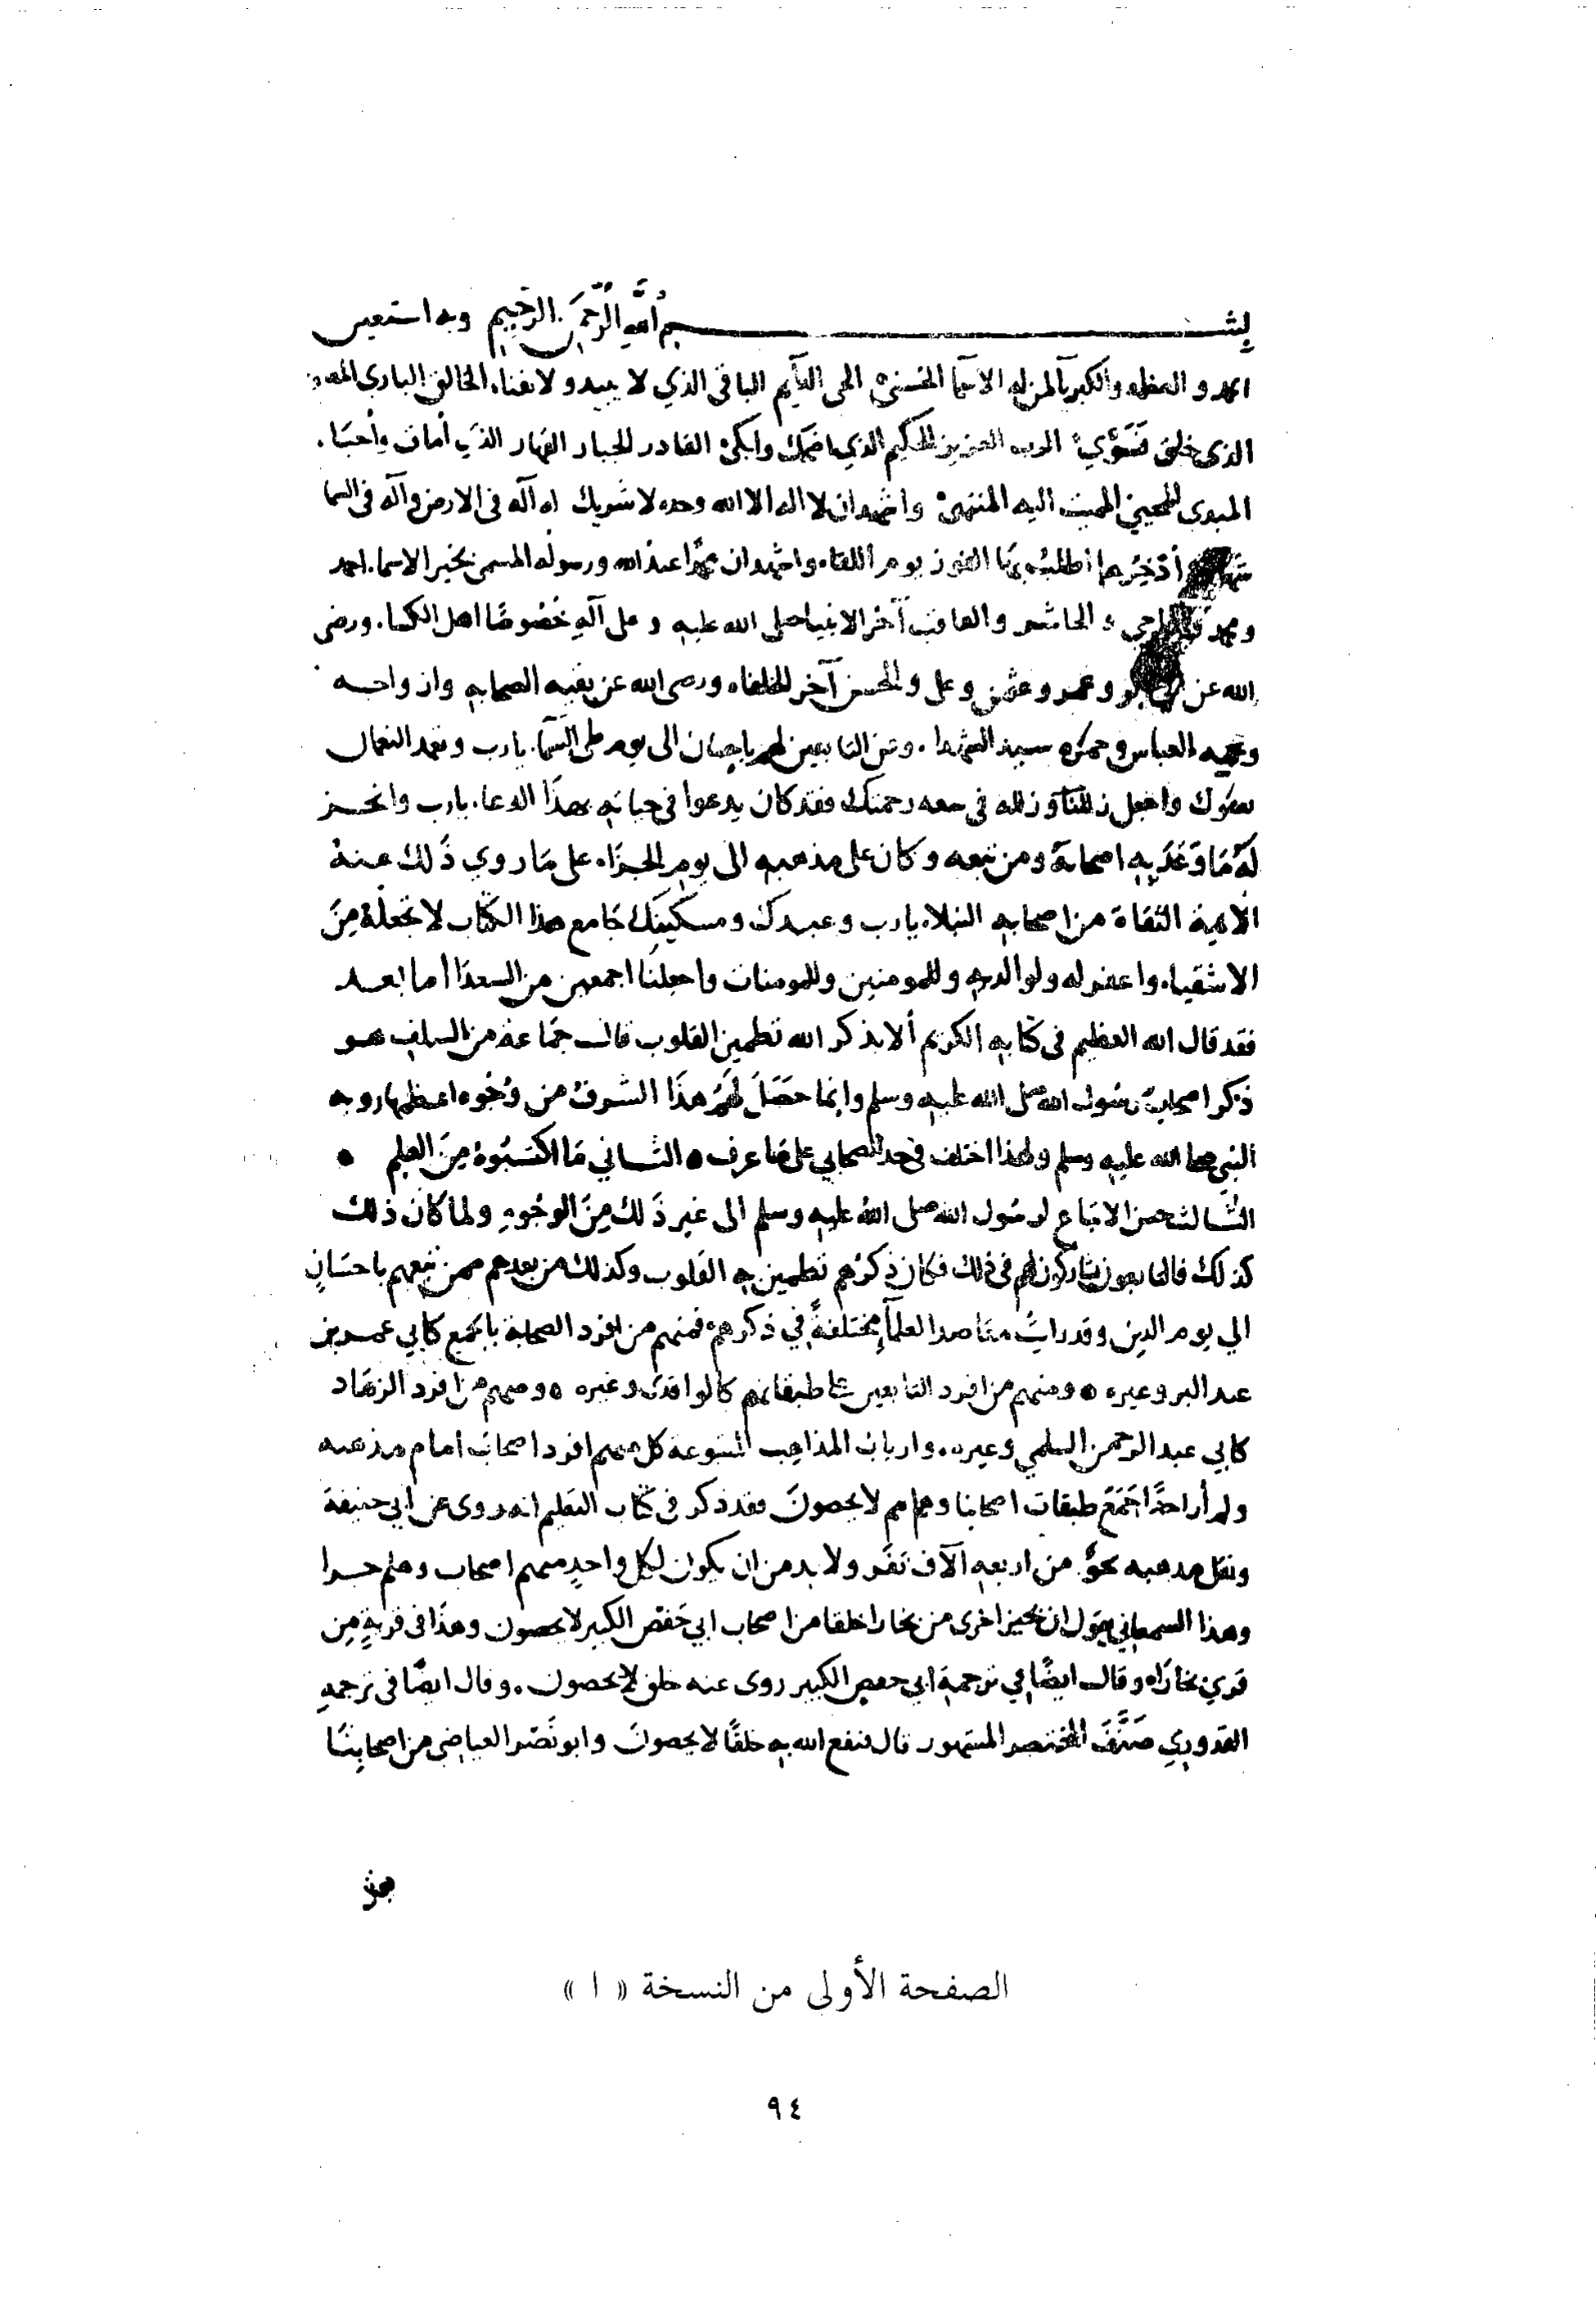 بسم الله الرحمن الرحيم وبه استعين
الحمد والعظمه والكبريآ لمن له الاسمآ الحسنى الحي الدآيم الباقي الذي لا يبيد ولا يفنا. الخالق البارى المصور
الذى خلق فَسَوَّي الرب العزيز الحكيم الذي اضحك وابكى القادر الجبار القهار الذي أمات وأحيَا.
المبدى المحيي المميت اليه المنتهى واشهد ان لا اله الا الله وحده لا شريك له اله في الارض واله في السما
أدّخرها أطلب بها الفوز يوم اللقاء واشهد ان محمدًا عبد الله ورسوله المسمى بخير الاسما. احمد
ومحمد الماحي الحاشر والعاقب آخر الانبيا صلى الله عليه وعلى آلهِ خُصُوصًا اهل الكسا. ورضى
الله عن وعمر وعثمن وعلى والحسن آخر الخلفاء ورضى الله عن بقيه الصحابه وازواجه
وعميه العباس وحمزه سيد الشهدا. وعن التابعين لهم باحسان الى يوم طي السَّمآ. يارب وتغمد النعمان
بعفوك واجعل زللنا وزلله في سعه رحمتك فقد كان يدعوا في حياته بهذَا الدعا. يارب وانجز
لَهُ مَا وَعَدَ بِهِ اصحابهُ ومن تبعه وكان على مذهبه الى يوم الجزَاء على مَا روي ذَلك عنهُ
الأيمة الثقاة من اصحابه النبلاء يارب وعبدك ومسكينك جَامع هذا الكتاب لا تجعلْهُ مِنَ
الاشقياء واغفر له ولوالديه وللمومنين وللمومنات واجعلنا اجمعين من السعدَا أما بعد
فقد قال الله العظيم في كتابه الكريم ألا بذكر الله تطمين القلوب قال جمَاعة من السلف هو
ذكر اصحاب رسُول الله صلى الله عليه وسلم وانما حَصَلَ لَهُم هذَا الشرف من وُجُوه اعظمها رويه
النبي صلى الله عليه وسلم ولهذا اختلف في حد الصحابي على مَا عرف • الثاني مَا اكتسَبُوهُ مِنَ العلم •
الثَّالث حسن الاتباع لرسُول الله صلى اللهُ عليه وسلم الى غير ذَلك مِنَ الوجُوه ولما كانَ ذلك
كذلك فالتابعون يشاركونهم في ذلك فكان ذِكرُهم تطمين به القلوب وكذلك من بعدهم ممن تبعهم باحسَانٍ
الي يوم الدين وقد رايتُ مقاصد العلمآءِ مختلفةً في ذكرهم فمنهم من افرد الصحابة بالجمع كابي عمر بن
عبد البر وغيره • ومنهم من افرد التابعين على طبقاتهم كالواقدى وغيره • ومنهم من افرد الزهاد
كابي عبد الرحمن السلمي وغيره. وارباب المذاهب المتبوعه كل منهم افرد اصحاب امام مذهبه
ولم أر احدًا جَمَعَ طبقات اصحابنا وهم امم لا يحصون فقد ذكر في كتاب التعليم انه روى عن أبي حنيفة
ونقل مذهبه نحوٌ من اربعه آلاف نَفَر ولا بد من ان يكون لكل واحدٍ منهم اصحاب وهلم جرا
وهذا السمعاني يقول ان بخيزاخرى من بخارا خلقا من اصحاب ابي حَفصْ الكبير لا يحصون وهذَا في قريةٍ مِن
قري بخارَاء وقال ايضًا في ترجمة ابي حفص الكبير روى عنه خلق لا يحصون. وقال ايضًا في ترجمهِ
القدوري صَنَّفَ المختصر المشهور قال فنفع الله به خلقًا لا يحصونَ وابو نَصْر العياضي من اصحابِنَا
الصفحة الأولى من النسخة « ا »
٩٤